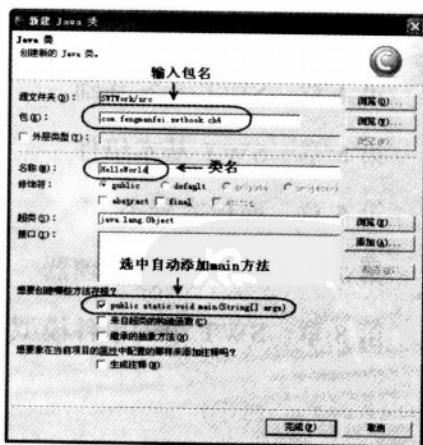 新建 Java 类
Java 类
创建新的 Java 类。
输入包名
源文件夹(D): SWTWork/src 浏览(O)...
包(K): com.fengmanfei.swtbook.ch4 浏览(W)...
外层类型(Y):
名称(M): HelloWorld 类名
修饰符: public default private protected
abstract final static
超类(S): java.lang.Object 浏览(E)...
接口(I): 添加(A)...
选中自动添加main方法
想要创建哪些方法存根?
public static void main(String[] args)
来自超类的构造函数(C)
继承的抽象方法(H)
想要象在当前项目的属性中配置的那样来添加注释吗?
生成注释(N)
完成(F) 取消